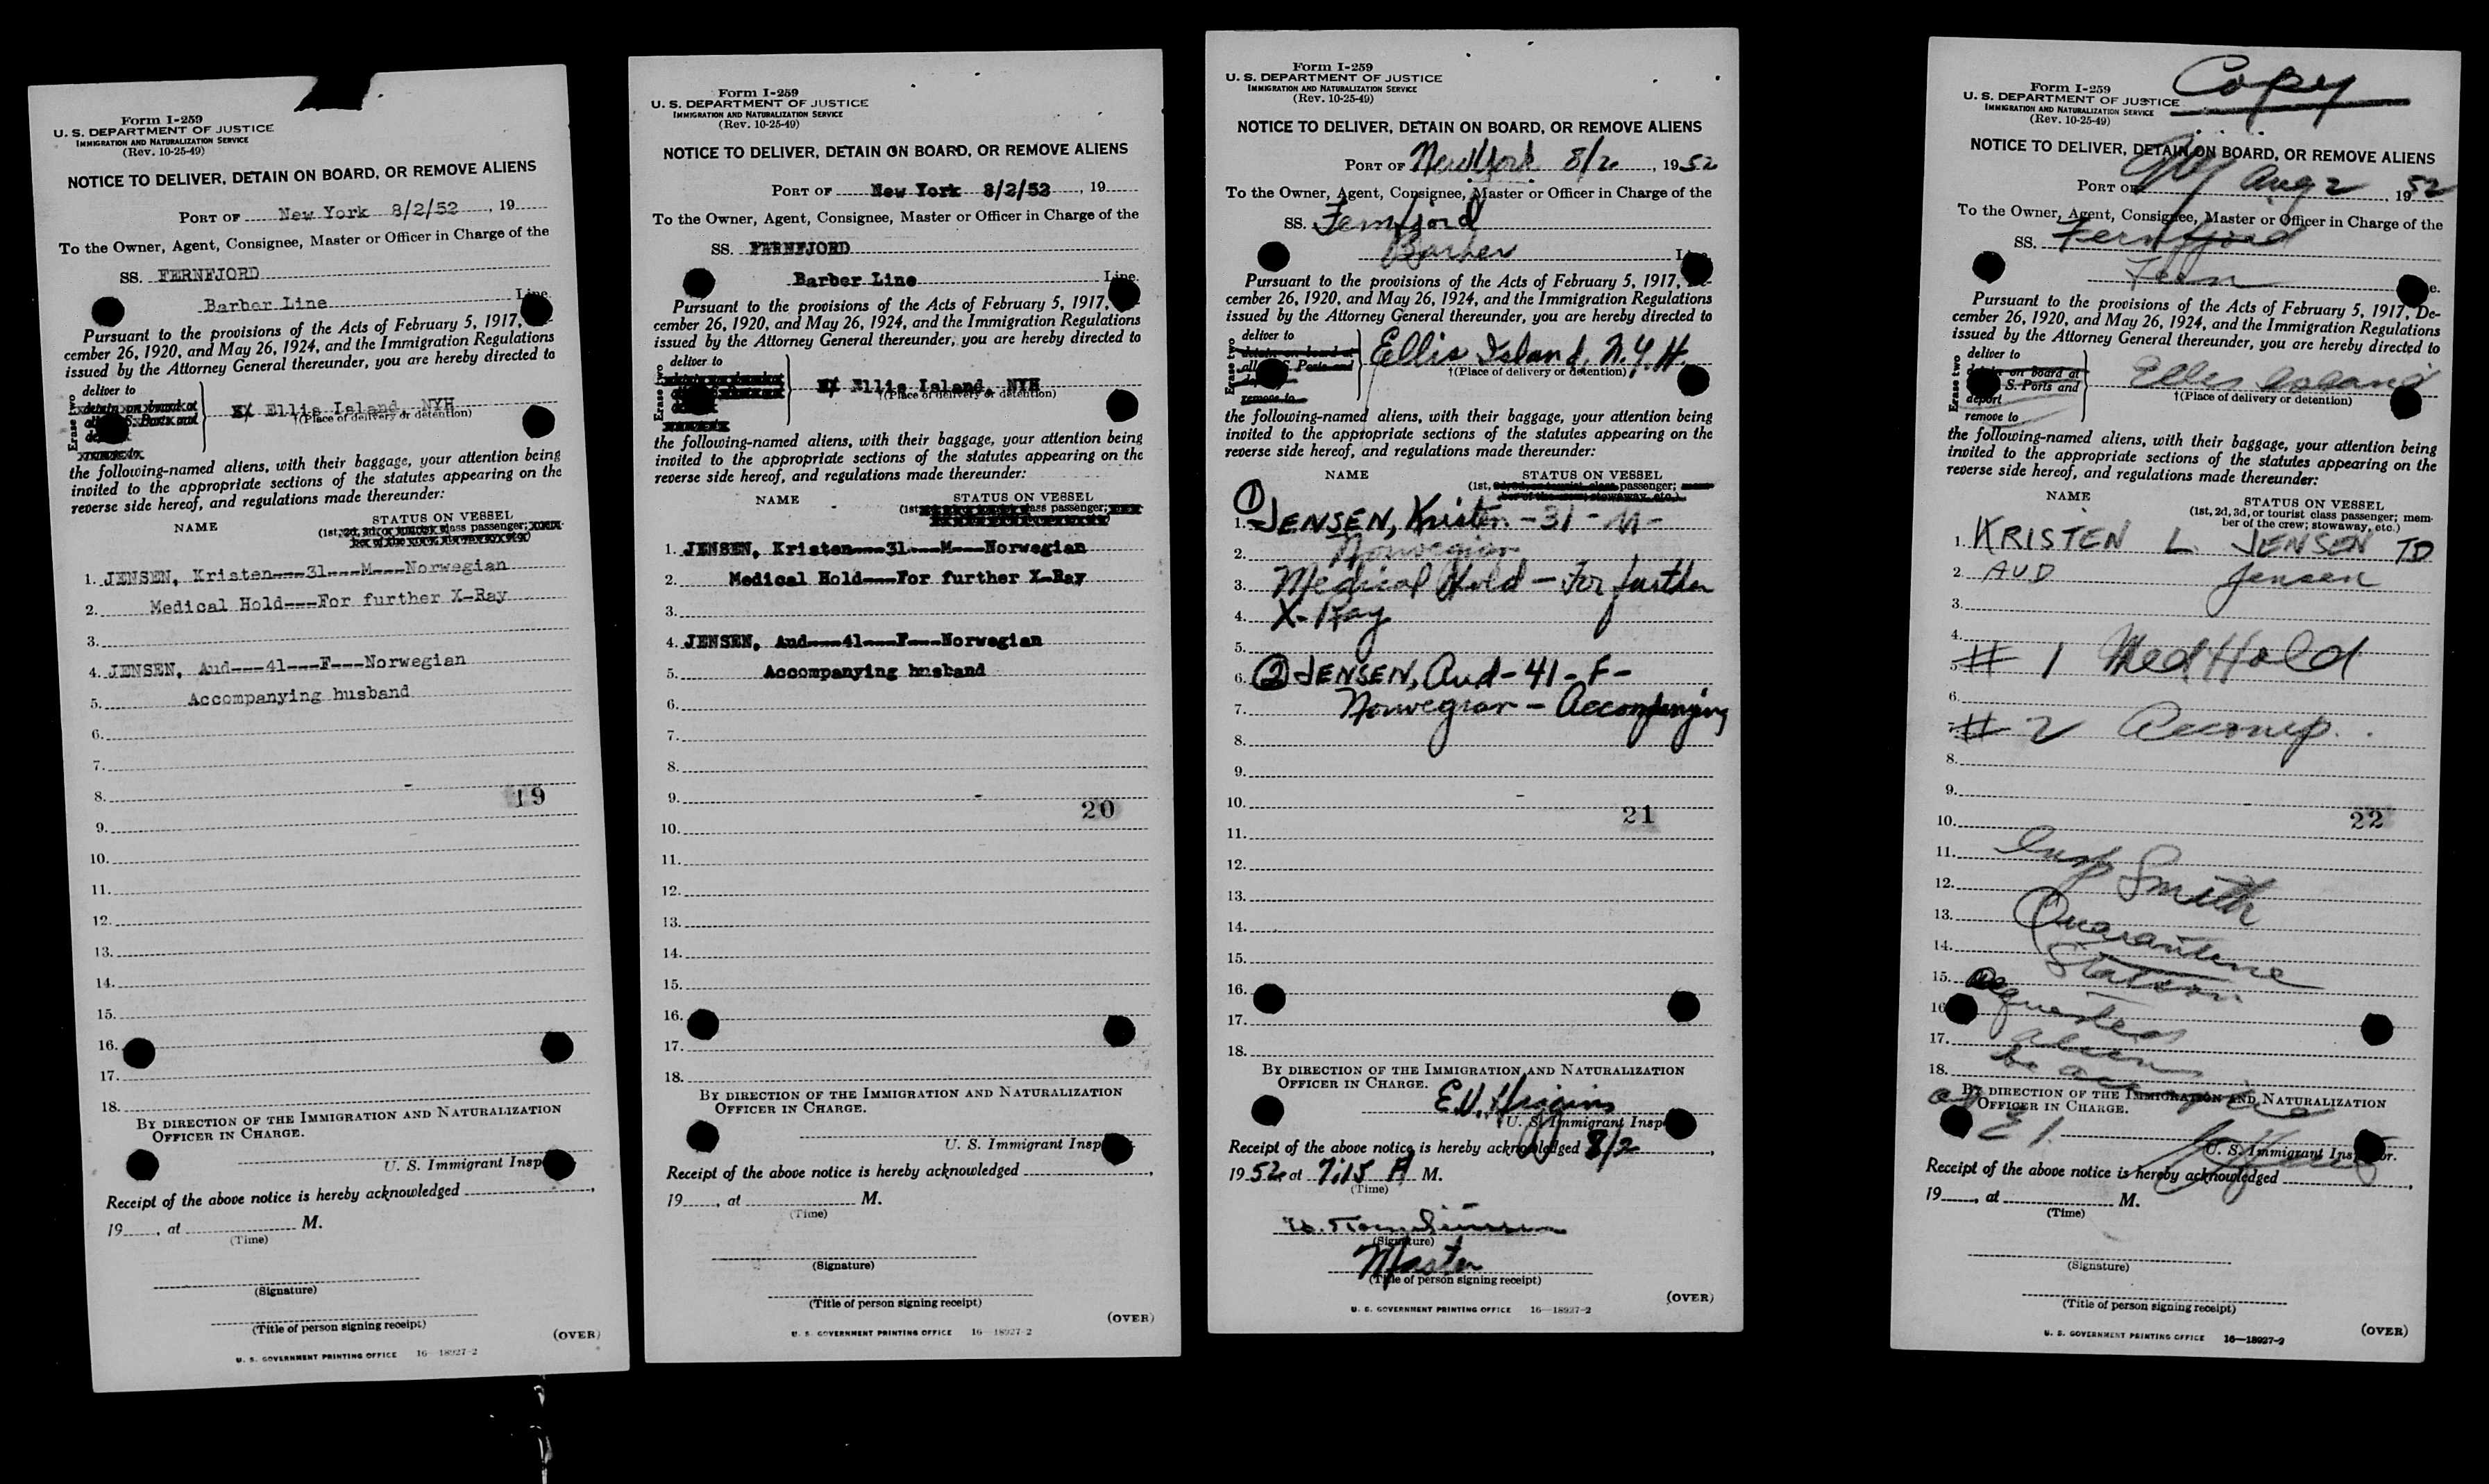 Form I-259
U. S. DEPARTMENT OF JUSTICE
IMMIGRATION AND NATURALIZATION SERVICE
(Rev. 10-25-49)
NOTICE TO DELIVER, DETAIN ON BOARD, OR REMOVE ALIENS
PORT OF New York 8/2/52, 19
To the Owner, Agent, Consignee, Master or Officer in Charge of the
SS. FERNFJORD
Barber Line Line.
Pursuant to the provisions of the Acts of February 5, 1917,
cember 26, 1920, and May 26, 1924, and the Immigration Regulations
issued by the Attorney General thereunder, you are hereby directed to
Erase two
deliver to
detain on board at
all S. Ports and
Ellis Island, NYH
†(Place of delivery or detention)
the following-named aliens, with their baggage, your attention being
invited to the appropriate sections of the statutes appearing on the
reverse side hereof, and regulations made thereunder:
NAME STATUS ON VESSEL
(1st, 2d, 3d, or tourist class passenger;
1. JENSEN, Kristen---31---M---Norwegian
2. Medical Hold---For further X-Ray
3.
4. JENSEN, Aud---41---F---Norwegian
5. Accompanying husband
6.
7.
8.
19
9.
10.
11.
12.
13.
14.
15.
16.
17.
18.
BY DIRECTION OF THE IMMIGRATION AND NATURALIZATION
OFFICER IN CHARGE.
U. S. Immigrant Insp
Receipt of the above notice is hereby acknowledged
19, at M.
(Time)
(Signature)
(Title of person signing receipt)
(OVER)
U. S. GOVERNMENT PRINTING OFFICE 16—18927-2
Form I-259
U. S. DEPARTMENT OF JUSTICE
IMMIGRATION AND NATURALIZATION SERVICE
(Rev. 10-25-49)
NOTICE TO DELIVER, DETAIN ON BOARD, OR REMOVE ALIENS
PORT OF New York 8/2/52, 19
To the Owner, Agent, Consignee, Master or Officer in Charge of the
SS. FERNFJORD
Barber Line Line.
Pursuant to the provisions of the Acts of February 5, 1917,
cember 26, 1920, and May 26, 1924, and the Immigration Regulations
issued by the Attorney General thereunder, you are hereby directed to
Erase two
deliver to
Ellis Island, NYH
†(Place of delivery or detention)
the following-named aliens, with their baggage, your attention being
invited to the appropriate sections of the statutes appearing on the
reverse side hereof, and regulations made thereunder:
NAME STATUS ON VESSEL
(1st class passenger;
1. JENSEN, Kristen---31---M---Norwegian
2. Medical Hold---For further X-Ray
3.
4. JENSEN, Aud---41---F---Norwegian
5. Accompanying husband
6.
7.
8.
9.
20
10.
11.
12.
13.
14.
15.
16.
17.
18.
BY DIRECTION OF THE IMMIGRATION AND NATURALIZATION
OFFICER IN CHARGE.
U. S. Immigrant Insp
Receipt of the above notice is hereby acknowledged
19, at M.
(Time)
(Signature)
(Title of person signing receipt)
(OVER)
U. S. GOVERNMENT PRINTING OFFICE 16—18927-2
Form I-259
U. S. DEPARTMENT OF JUSTICE
IMMIGRATION AND NATURALIZATION SERVICE
(Rev. 10-25-49)
NOTICE TO DELIVER, DETAIN ON BOARD, OR REMOVE ALIENS
PORT OF New York 8/2, 1952
To the Owner, Agent, Consignee, Master or Officer in Charge of the
SS. Fernfjord
Barber
Pursuant to the provisions of the Acts of February 5, 1917,
cember 26, 1920, and May 26, 1924, and the Immigration Regulations
issued by the Attorney General thereunder, you are hereby directed to
Erase two
deliver to
detain on board at
all S. Ports and
remove to
Ellis Island, N.Y.H.
†(Place of delivery or detention)
the following-named aliens, with their baggage, your attention being
invited to the appropriate sections of the statutes appearing on the
reverse side hereof, and regulations made thereunder:
NAME STATUS ON VESSEL
(1st, 2d, 3d, or tourist class passenger; mem-
ber of the crew; stowaway, etc.)
①
1. JENSEN, Kristen - 31 - M -
2. Norwegian
3. Medical Hold - For further
4. X-Ray
5.
6. ② JENSEN, Aud - 41 - F -
7. Norwegian - Accompanying
8.
9.
10.
21
11.
12.
13.
14.
15.
16.
17.
18.
BY DIRECTION OF THE IMMIGRATION AND NATURALIZATION
OFFICER IN CHARGE.
U. S. Immigrant Insp
Receipt of the above notice is hereby acknowledged 8/2,
1952 at 7:15 A M.
(Time)
(Signature)
Master
(Title of person signing receipt)
(OVER)
U. S. GOVERNMENT PRINTING OFFICE 16—18927-2
Copy
Form I-259
U. S. DEPARTMENT OF JUSTICE
IMMIGRATION AND NATURALIZATION SERVICE
(Rev. 10-25-49)
NOTICE TO DELIVER, DETAIN ON BOARD, OR REMOVE ALIENS
PORT OF NY Aug 2, 1952
To the Owner, Agent, Consignee, Master or Officer in Charge of the
SS. Fernfjord
Fern
Pursuant to the provisions of the Acts of February 5, 1917, De-
cember 26, 1920, and May 26, 1924, and the Immigration Regulations
issued by the Attorney General thereunder, you are hereby directed to
Erase two
deliver to
on board at
S. Ports and
deport
remove to
Ellis Island
†(Place of delivery or detention)
the following-named aliens, with their baggage, your attention being
invited to the appropriate sections of the statutes appearing on the
reverse side hereof, and regulations made thereunder:
NAME STATUS ON VESSEL
(1st, 2d, 3d, or tourist class passenger; mem-
ber of the crew; stowaway, etc.)
1. KRISTEN L. JENSEN TD
2. AUD Jensen
3.
4.
5. # 1 Med Hold
6.
7. # 2 Accomp.
8.
9.
22
10.
11. Insp Smith
12.
13. Quarantine
14. Station
15. Requested
16.
17. aliens
18. be
BY DIRECTION OF THE IMMIGRATION AND NATURALIZATION
OFFICER IN CHARGE.
E I.
U. S. Immigrant Inspector.
Receipt of the above notice is hereby acknowledged
19, at M.
(Time)
(Signature)
(Title of person signing receipt)
(OVER)
U. S. GOVERNMENT PRINTING OFFICE 16—18927-2